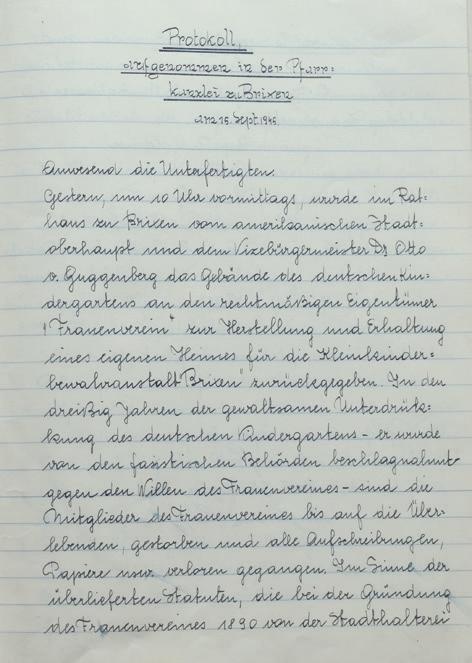 Protokoll,
aufgenommen in der Pfarr=
kanzlei zu Brixen
am 15. Sept. 1945.
Anwesend die Unterfertigten.
Gestern, um 10 Uhr vormittags, wurde im Rat=
haus zu Brixen vom amerikanischen Stadt=
oberhaupt und dem Vizebürgermeister Dr Otto
v. Guggenberg das Gebäude des deutschen Kin=
dergartens an den rechtmäßigen Eigentümer
"Frauenverein" zur Herstellung und Erhaltung
eines eigenen Heimes für die Kleinkinder=
bewahranstalt Brixen" zurückgegeben. In den
dreißig Jahren der gewaltsamen Unterdrük=
kung des deutschen Kindergartens - er wurde
von den fasistischen Behörden beschlagnahmt
gegen den Willen des Frauenvereines - sind die
Mitglieder des Frauenvereines bis auf die Über=
lebenden, gestorben und alle Aufschreibungen,
Papiere usw. verloren gegangen. Im Sinne der
überlieferten Statuten, die bei der Gründung
des Frauenvereines 1890 von der Stadthalterei